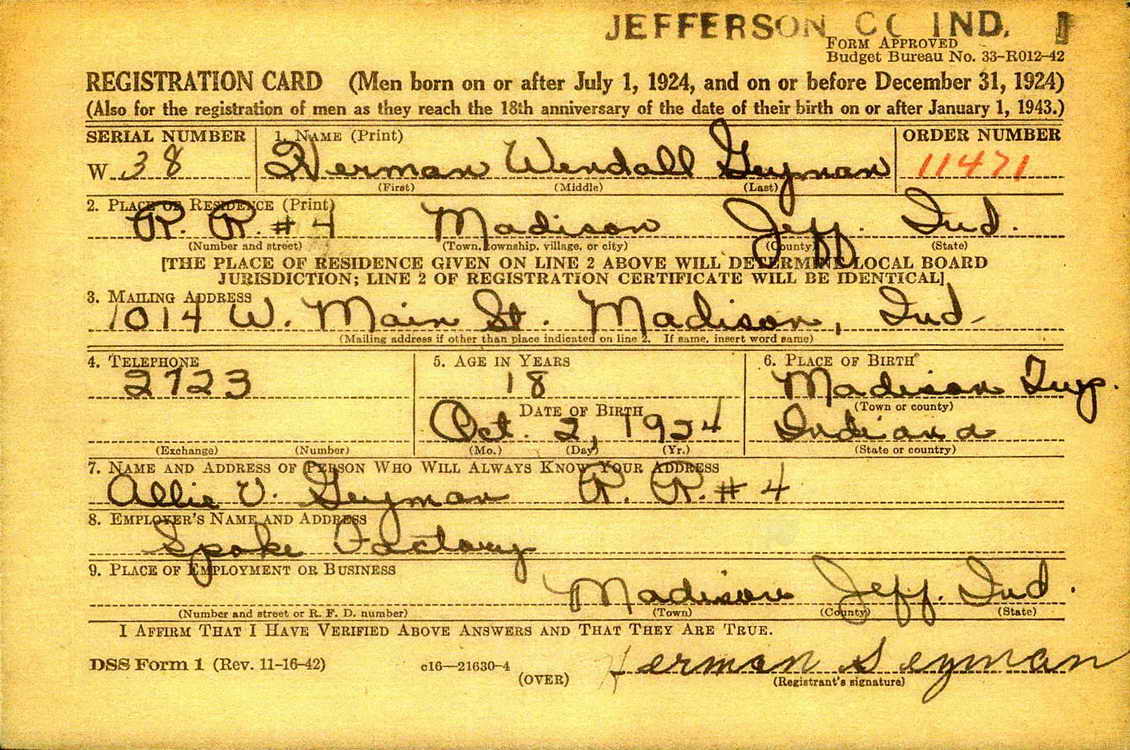 JEFFERSON CO IND.
FORM APPROVED
Budget Bureau No. 33–R012–42
REGISTRATION CARD (Men born on or after July 1, 1924, and on or before December 31, 1924)
(Also for the registration of men as they reach the 18th anniversary of the date of their birth on or after January 1, 1943.)
SERIAL NUMBER 1. NAME (Print) ORDER NUMBER
W 38 Herman Wendall Geyman 11471
(First) (Middle) (Last)
2. PLACE OF RESIDENCE (Print)
R. R. # 4 Madison Jeff. Ind.
(Number and street) (Town, township, village, or city) (County) (State)
[THE PLACE OF RESIDENCE GIVEN ON LINE 2 ABOVE WILL DETERMINE LOCAL BOARD
JURISDICTION; LINE 2 OF REGISTRATION CERTIFICATE WILL BE IDENTICAL]
3. MAILING ADDRESS
1014 W. Main St. Madison, Ind.
(Mailing address if other than place indicated on line 2. If same, insert word same)
4. TELEPHONE 5. AGE IN YEARS 6. PLACE OF BIRTH
2723 18 Madison Twp.
DATE OF BIRTH (Town or county)
Oct. 2, 1924 Indiana
(Exchange) (Number) (Mo.) (Day) (Yr.) (State or country)
7. NAME AND ADDRESS OF PERSON WHO WILL ALWAYS KNOW YOUR ADDRESS
Allie V. Geyman R. R. # 4
8. EMPLOYER'S NAME AND ADDRESS
Spoke Factory
9. PLACE OF EMPLOYMENT OR BUSINESS
Madison Jeff. Ind.
(Number and street or R. F. D. number) (Town) (County) (State)
I AFFIRM THAT I HAVE VERIFIED ABOVE ANSWERS AND THAT THEY ARE TRUE.
DSS Form 1 (Rev. 11-16-42) c16—21630-4 Herman Geyman
(OVER) (Registrant's signature)